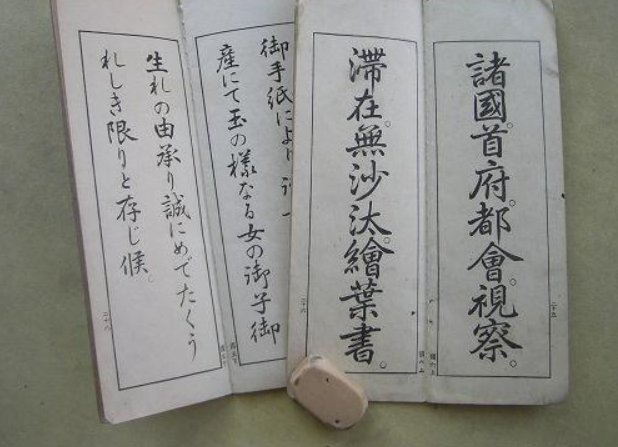 諸國。首府。都會。視察。
滞在。無沙汰。繪葉書。
御手紙により
産にて玉の樣なる女の御子御
生れの由承り誠にめでたくう
れしき限りと存じ候。
二十五
二十六
二十八